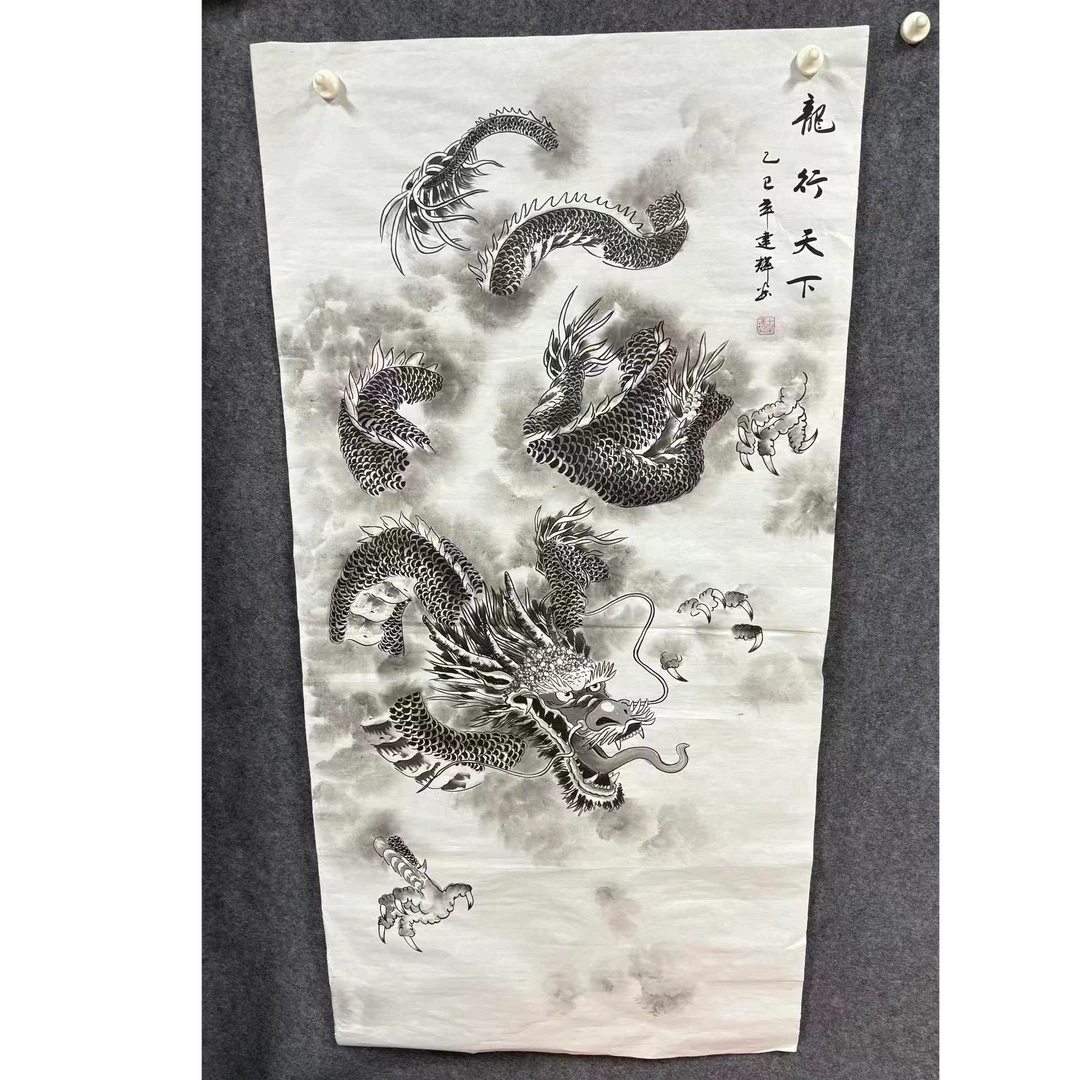 龍行天下
乙巳年建輝画